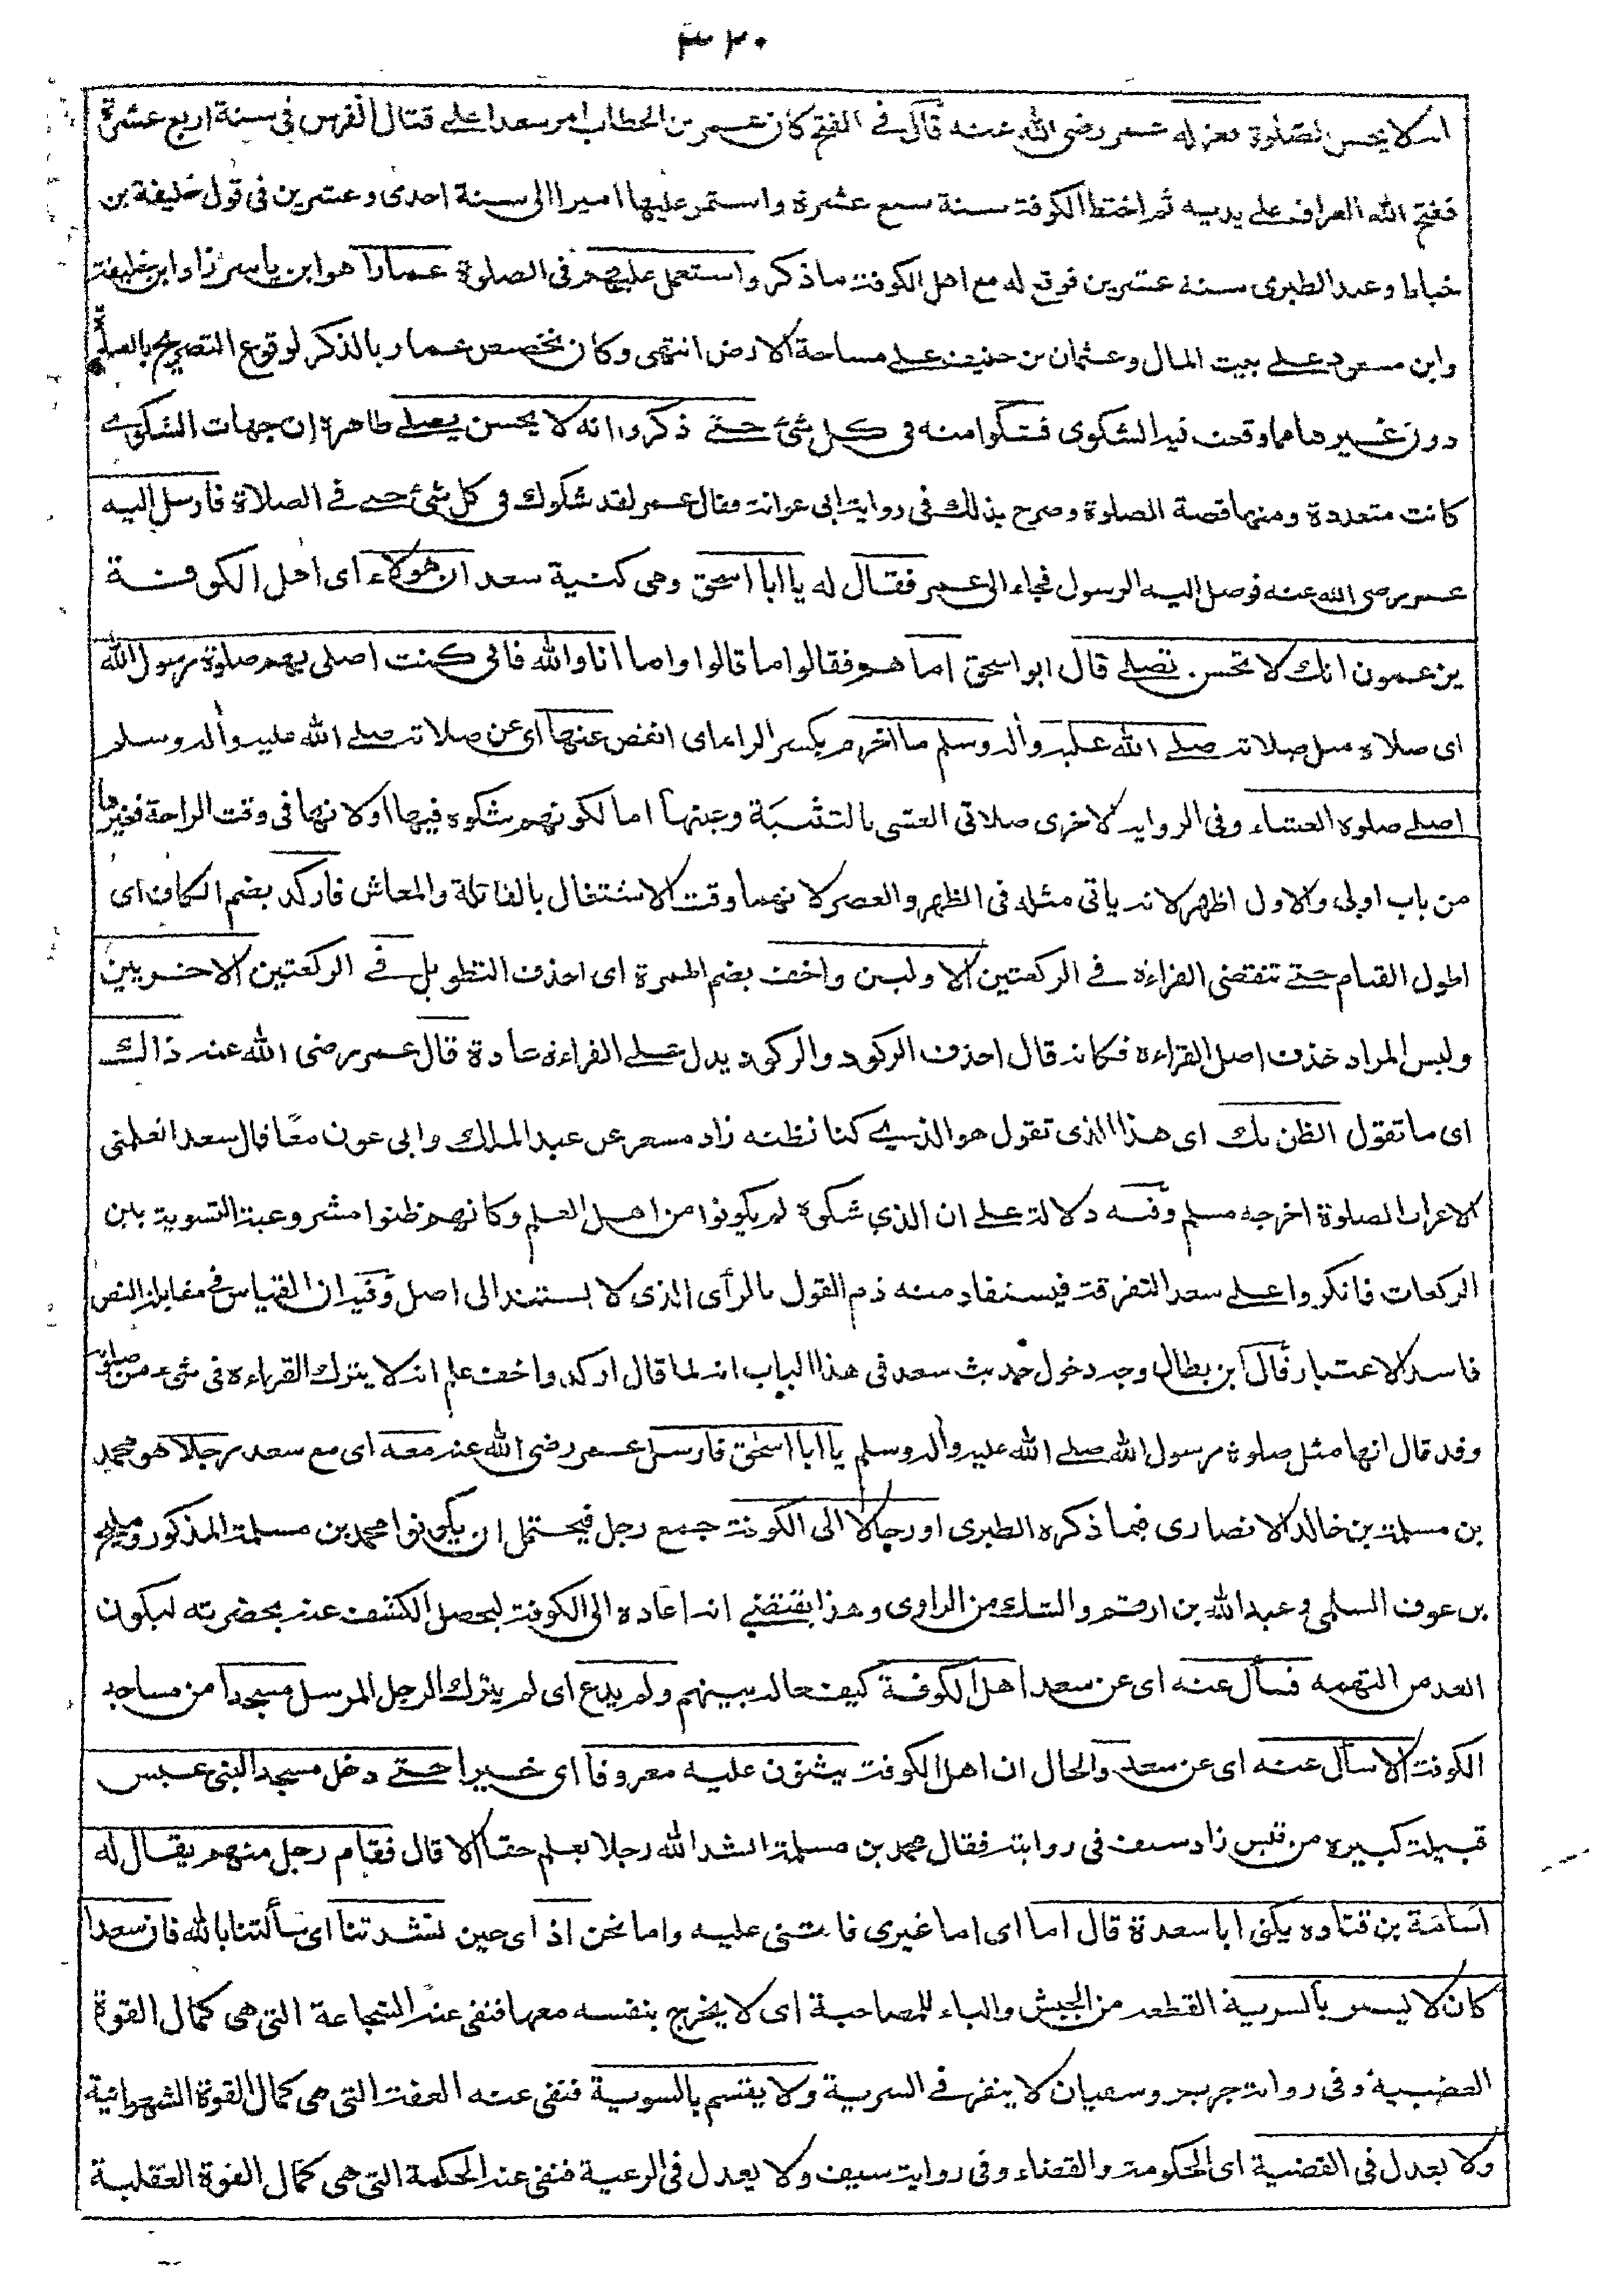 ٣٢٠
انه لا يحسن الصلوة فعزله عمر رضى الله عنه قال فى الفتح كان عمر بن الخطاب امر سعدا على قتال الفرس فى سنة اربع عشرة
ففتح الله العراق على يديه ثم اختط الكوفة سنة سبع عشرة واستمر عليها اميرا الى سنة احدى وعشرين فى قول خليفة بن
خياط وعند الطبرى سنة عشرين فوقع له مع اهل الكوفة ما ذكر واستعمل عليهم فى الصلوة عمارا هو ابن ياسر زاد ابن خليفة
وابن مسعود على بيت المال وعثمان بن حنيف على مساحة الارض انتهى وكان تخصيص عمار بالذكر لوقوع التصريح بالصلوة
دون غيرها مما وقعت فيه الشكوى فشكوا منه فى كل شئ حتى ذكروا انه لا يحسن يصلى ظاهرة ان جهات الشكوى
كانت متعددة ومنها قصة الصلوة وصرح بذلك فى رواية ابى عوانة فقال عمر لقد شكوك فى كل شئ حتى فى الصلاة فأرسل اليه
عمر رضى الله عنه فوصل اليه الرسول فجاء الى عمر فقال له يا ابا اسحق وهى كنية سعد ان هولاء اى اهل الكوفة
يزعمون انك لا تحسن تصلى قال ابو اسحق اما هم فقالوا ما قالوا واما انا والله فانى كنت اصلى بهم صلوة رسول الله
اى صلاة مثل صلاته صلى الله عليه وأله وسلم ما اخرم بكسر الراء اى انقص عنها اى عن صلاته صلى الله عليه وأله وسلم
اصلى صلوة العشاء وفى الرواية الاخرى صلاتى العشى بالتثنية وعينها اما لكونهم شكوه فيها او لانها فى وقت الراحة فغيرها
من باب اولى والاول اظهر لانه ياتى مثله فى الظهر والعصر لانهما وقت الاشتغال بالقائلة والمعاش فاركد بضم الكاف اى
اطول القيام حتى تنقضى القراءة فى الركعتين الاوليين واخف بضم الهمزة اى احذف التطويل فى الركعتين الاخريين
وليس المراد حذف اصل القراءة فكانه قال احذف الركود والركود يدل على القراءة عادة قال عمر رضى الله عنه ذالك
اى ما تقول الظن بك اى هذا الذى تقول هو الذى كنا نظنه زاد مسعر عن عبد الملك وابى عون معا فقال سعد اتعلمنى
الاعراب الصلوة اخرجه مسلم وفيه دلالة على ان الذى شكوه لم يكونوا من اهل العلم وكانهم ظنوا مشروعية التسوية بين
الركعات فانكروا على سعد التفرقة فيستفاد منه ذم القول بالرأى الذى لا يستند الى اصل وفيه ان القياس فى مقابلة النص
فاسد الاعتبار قال ابن بطال وجه دخول حديث سعد فى هذا الباب انه لما قال اركد واخف علم انه لا يترك القراءة فى شئ من صلوته
وقد قال انها مثل صلوة رسول الله صلى الله عليه وأله وسلم يا ابا اسحق فارسل عمر رضى الله عنه معه اى مع سعد رجلا هو محمد
بن مسلمة بن خالد الانصارى فيما ذكره الطبرى او رجالا الى الكوفة جمع رجل فيحتمل ان يكونوا محمد بن مسلمة المذكور ومليح
بن عوف السلمى وعبد الله بن ارقم والشك من الراوى وهذا يقتضى انه اعاده الى الكوفة ليحصل الكشف عنه بحضرته ليكون
ابعد من التهمة فسأل عنه اى عن سعد اهل الكوفة كيف حاله بينهم ولم يدع اى لم يترك الرجل المرسل مسجدا من مساجد
الكوفة الا سأل عنه اى عن سعد والحال ان اهل الكوفة يثنون عليه معروفا اى خيرا حتى دخل مسجد البنى عبس
قبيلة كبيرة من قيس زاد سيف فى روايته فقال محمد بن مسلمة انشد الله رجلا يعلم حقا الا قال فقام رجل منهم يقال له
اسامة بن قتاده يكنى ابا سعدة قال اما اى اما غيرى فاثنى عليه واما نحن اذ اى حين نشدتنا اى سألتنا بالله فان سعدا
كان لا يسير بالسرية القطعة من الجيش والباء للمصاحبة اى لا يخرج بنفسه معها فنفى عنه الشجاعة التى هى كمال القوة
الغضبية وفى رواية جرير وسفيان لا ينفر فى السرية ولا يقسم بالسوية فنفى عنه العفة التى هى كمال القوة الشهوانية
ولا يعدل فى القضية اى الحكومة والقضاء وفى رواية سيف ولا يعدل فى الرعية فنفى عنه الحكمة التى هى كمال القوة العقلية